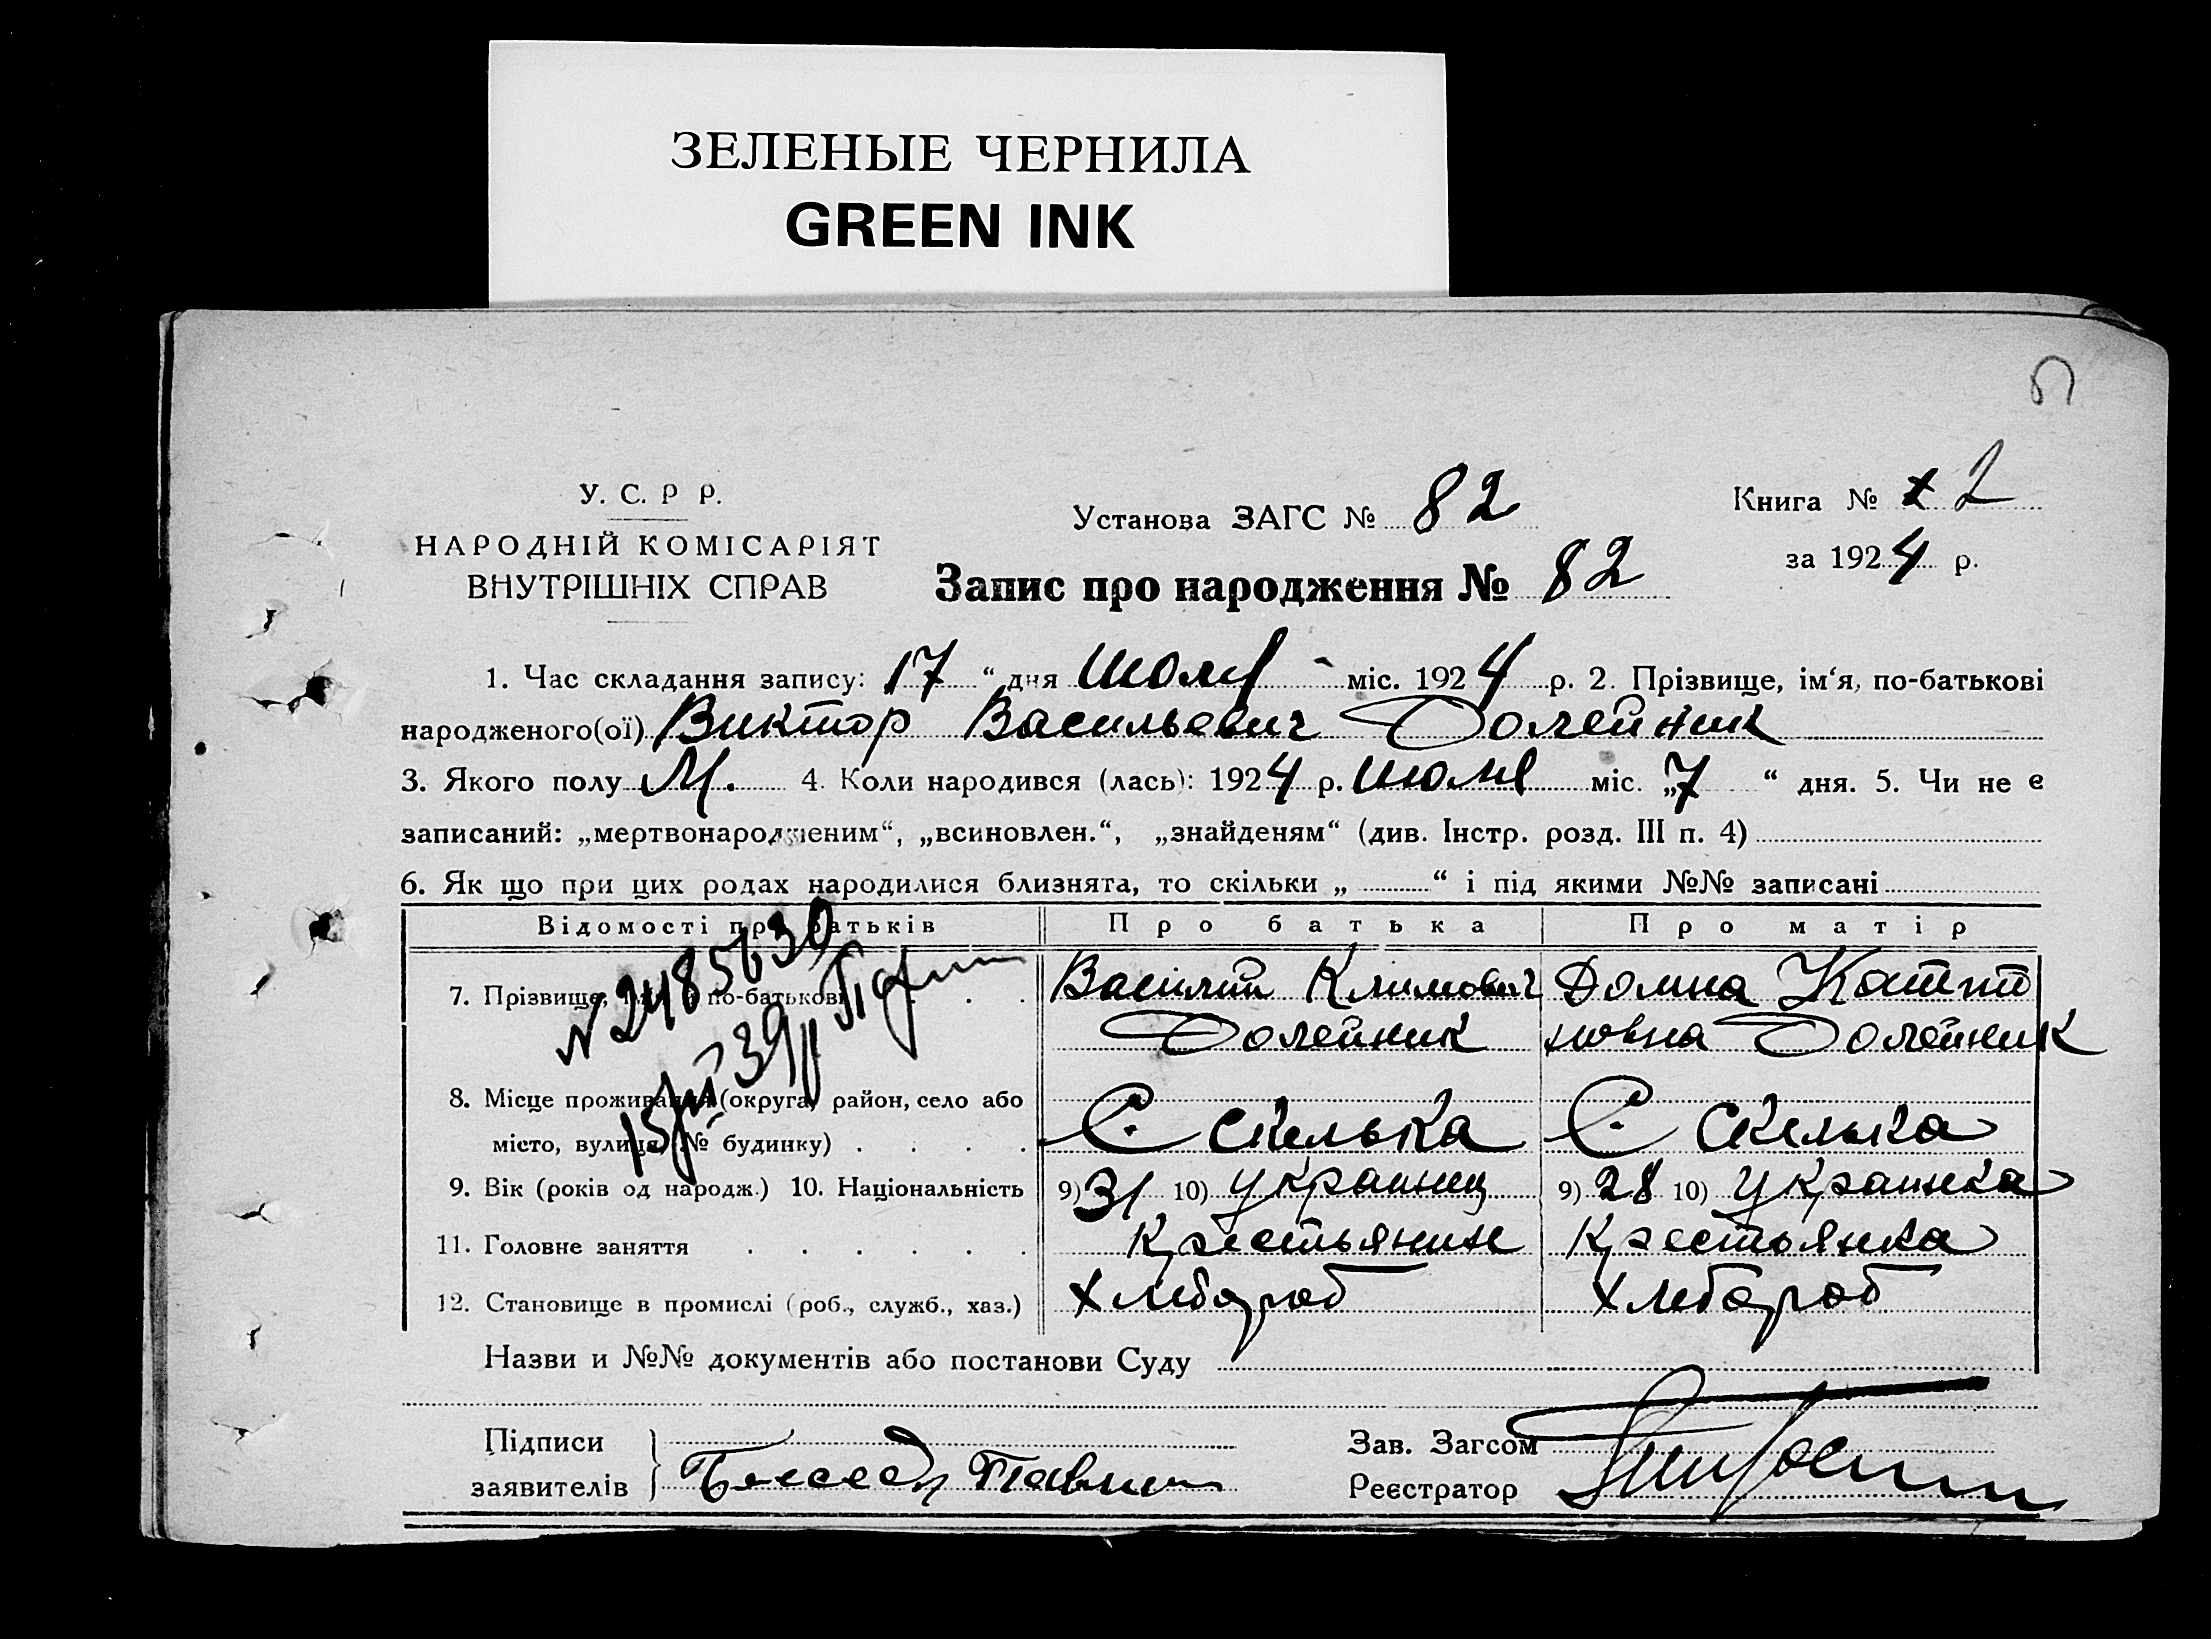 ЗЕЛЕНЫЕ ЧЕРНИЛА
GREEN INK
У. С. Р Р.
НАРОДНІЙ КОМІСАРІЯТ
ВНУТРІШНІХ СПРАВ
Установа ЗАГС № 82
Книга № 2
за 1924 р.
Запис про народження № 82
1. Час складання запису: 17 “ дня Июля міс. 1924 р. 2. Прізвище, ім‘я, по-батькові
народженого(ої) Виктор Васильевич Олейник
3. Якого полу М. 4. Коли народився (лась): 1924 р. июля міс. „7 “ дня. 5. Чи не є
записаний: „мертвонародженим“, „всиновлен.“, „знайденям“ (див. Інстр. розд. III п. 4)
6. Як що при цих родах народилися близнята, то скільки „ “ і під якими №№ записані
Відомості про батьків Про батька Про матір
7. Прізвище, ім‘я, по-батькові Василий Климович Домна
Олейник новна Олейник
8. Місце проживання (округа, район, село або
місто, вулиця, № будинку) С. Скелька С. Скелька
9. Вік (років од народж.) 10. Національність 9) 31 10) украинец 9) 28 10) украинка
11. Головне заняття Крестьянин Крестьянка
12. Становище в промислі (роб., служб., хаз.) Хлебороб Хлебороб
N 2485630
Назви и №№ документів або постанови Суду
Підписи
заявителів
Зав. Загсом
Реєстратор